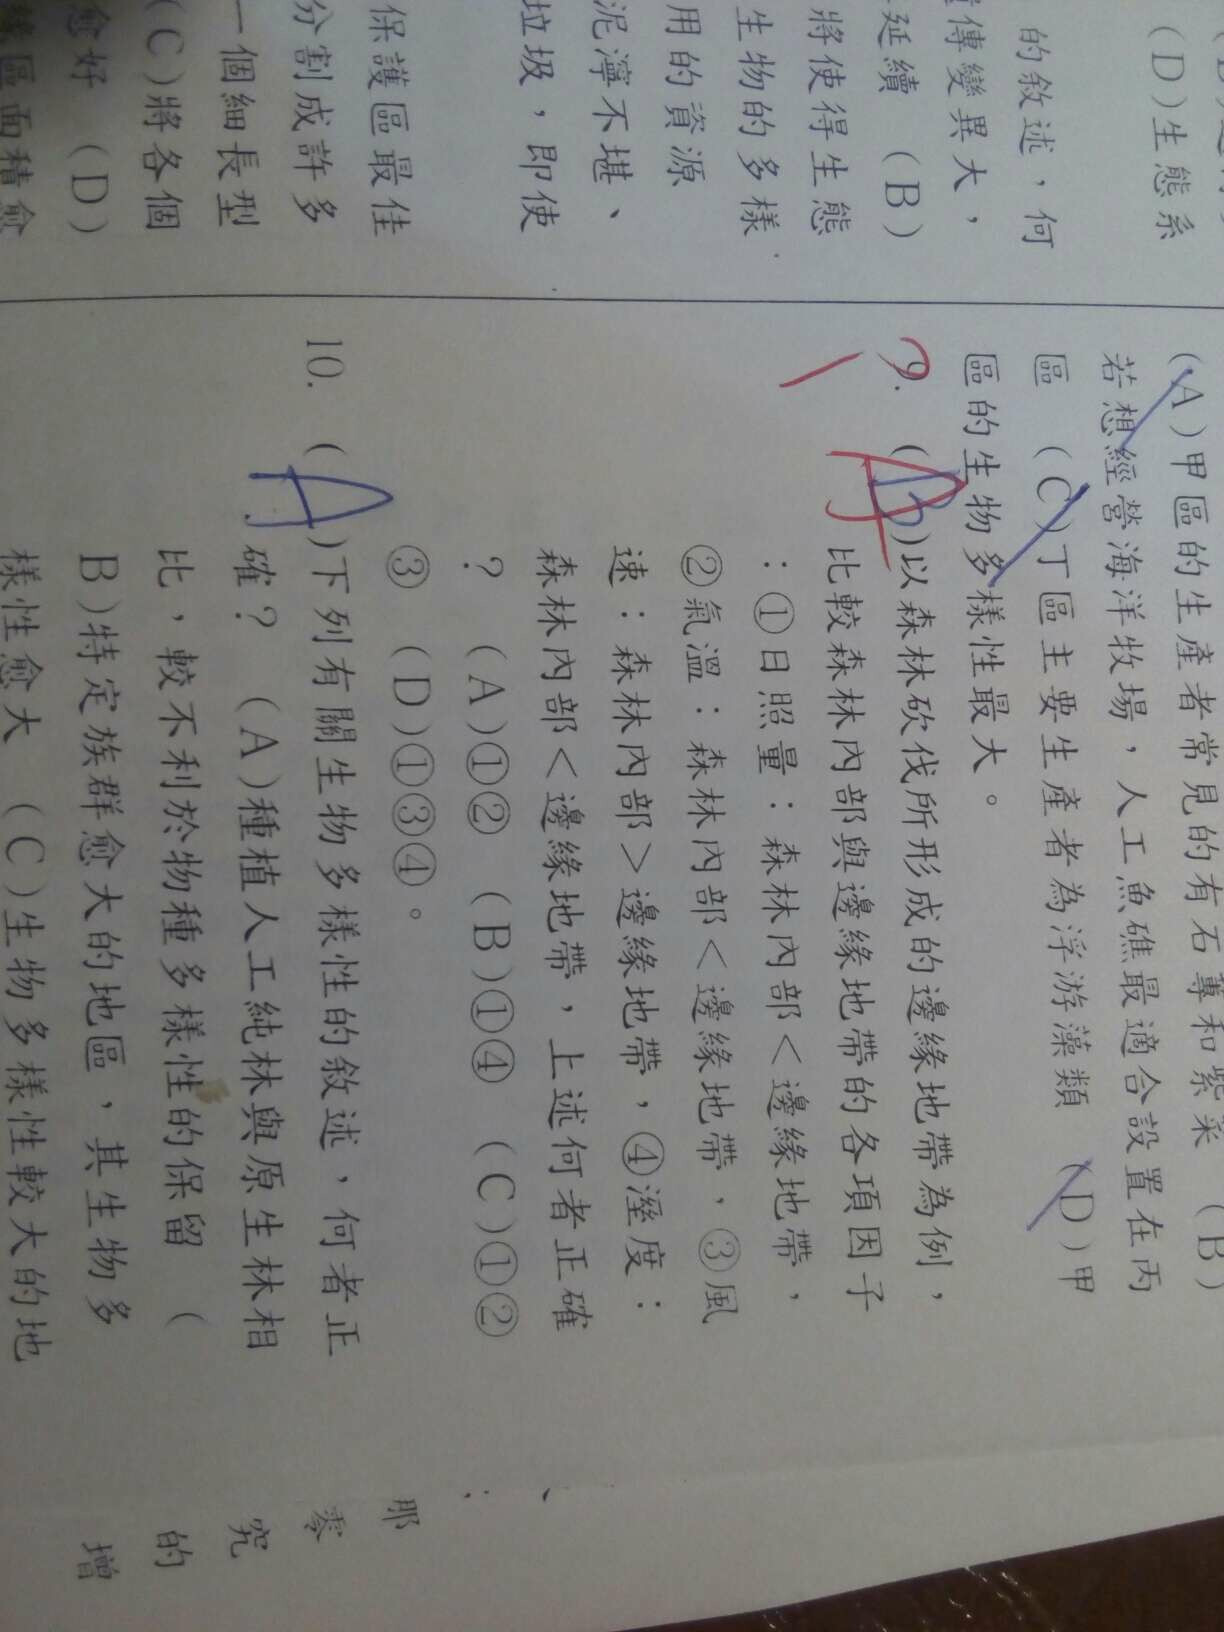 (D)生態系
的敘述，何
傳變異大，
延續 (B)
將使得生態
生物的多樣
用的資源
泥濘不堪、
垃圾，即使
保護區最佳
分割成許多
一個細長型
(C)將各個
愈好 (D)
區面積愈
(A)甲區的生產者常見的有石蓴和紫菜 (B)
若想經營海洋牧場，人工魚礁最適合設置在丙
區 (C)丁區主要生產者為浮游藻類 (D)甲
區的生物多樣性最大。
9. (B)以森林砍伐所形成的邊緣地帶為例，
A
比較森林內部與邊緣地帶的各項因子
：①日照量：森林內部＜邊緣地帶，
②氣溫：森林內部＜邊緣地帶，③風
速：森林內部＞邊緣地帶，④溼度：
森林內部＜邊緣地帶，上述何者正確
？ (A)①② (B)①④ (C)①②
③ (D)①③④。
10. (A)下列有關生物多樣性的敘述，何者正
確？ (A)種植人工純林與原生林相
比，較不利於物種多樣性的保留 (
B)特定族群愈大的地區，其生物多
樣性愈大 (C)生物多樣性較大的地
那
零
究
的
增